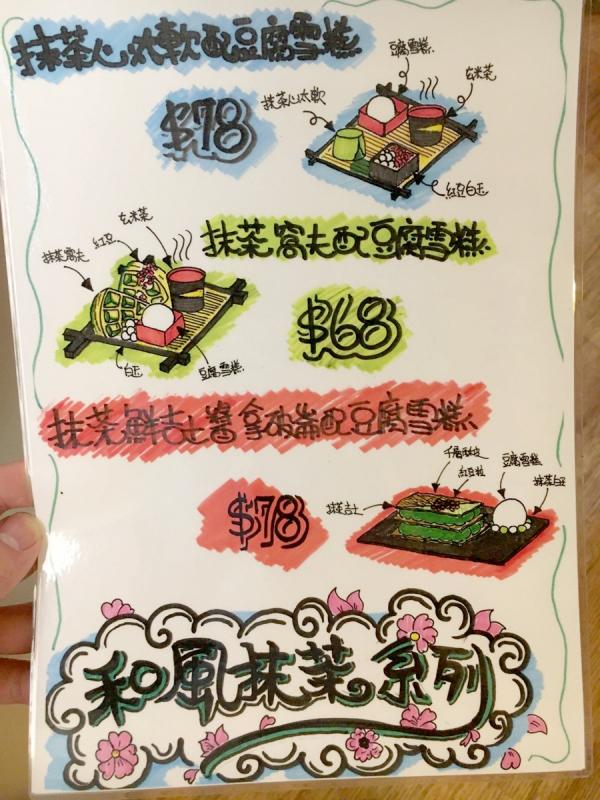 抹茶心太軟配豆腐雪糕
$78
豆腐雪糕
玄米茶
抹茶心太軟
紅豆白玉
抹茶窩夫配豆腐雪糕
$68
玄米茶
紅豆
抹茶窩夫
白玉
豆腐雪糕
抹茶鮮吉士醬拿破崙配豆腐雪糕
$78
千層酥皮
紅豆粒
豆腐雪糕
抹茶白玉
抹茶吉士
和風抹茶系列